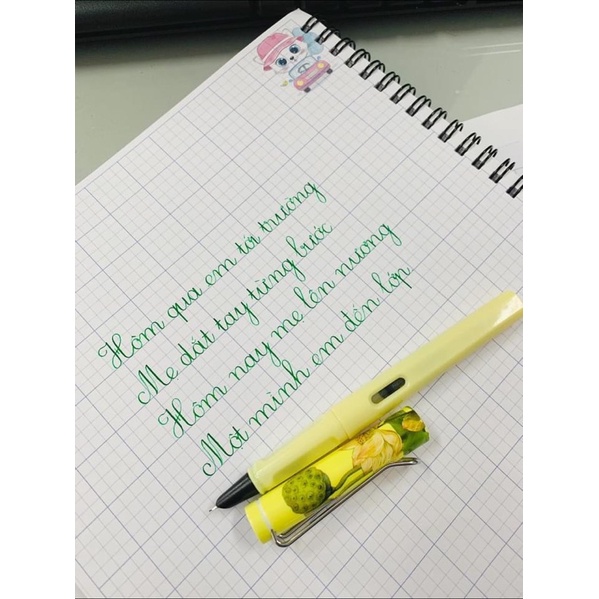 Hôm qua em tới trường
Mẹ dắt tay từng bước
Hôm nay mẹ lên nương
Một mình em đến lớp